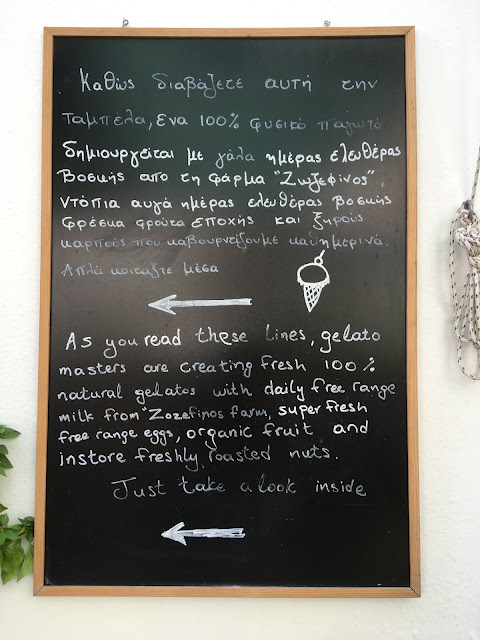 Καθώς διαβάζετε αυτή την
ταμπέλα, ένα 100% φυσικό παγωτό
δημιουργείται με γάλα ημέρας ελευθέρας
βοσκής απο τη φάρμα "Ζωζεφίνος",
ντόπια αυγά ημέρας ελευθέρας βοσκής
φρέσκα φρούτα εποχής και ξηρούς
καρπούς που καβουρντίζουμε καθημερινά.
Απλά κοιτάξτε μέσα
As you read these lines, gelato
masters are creating fresh 100%
natural gelatos with daily free range
milk from "Zozefinos farm, super fresh
free range eggs, organic fruit and
instore freshly roasted nuts.
Just take a look inside